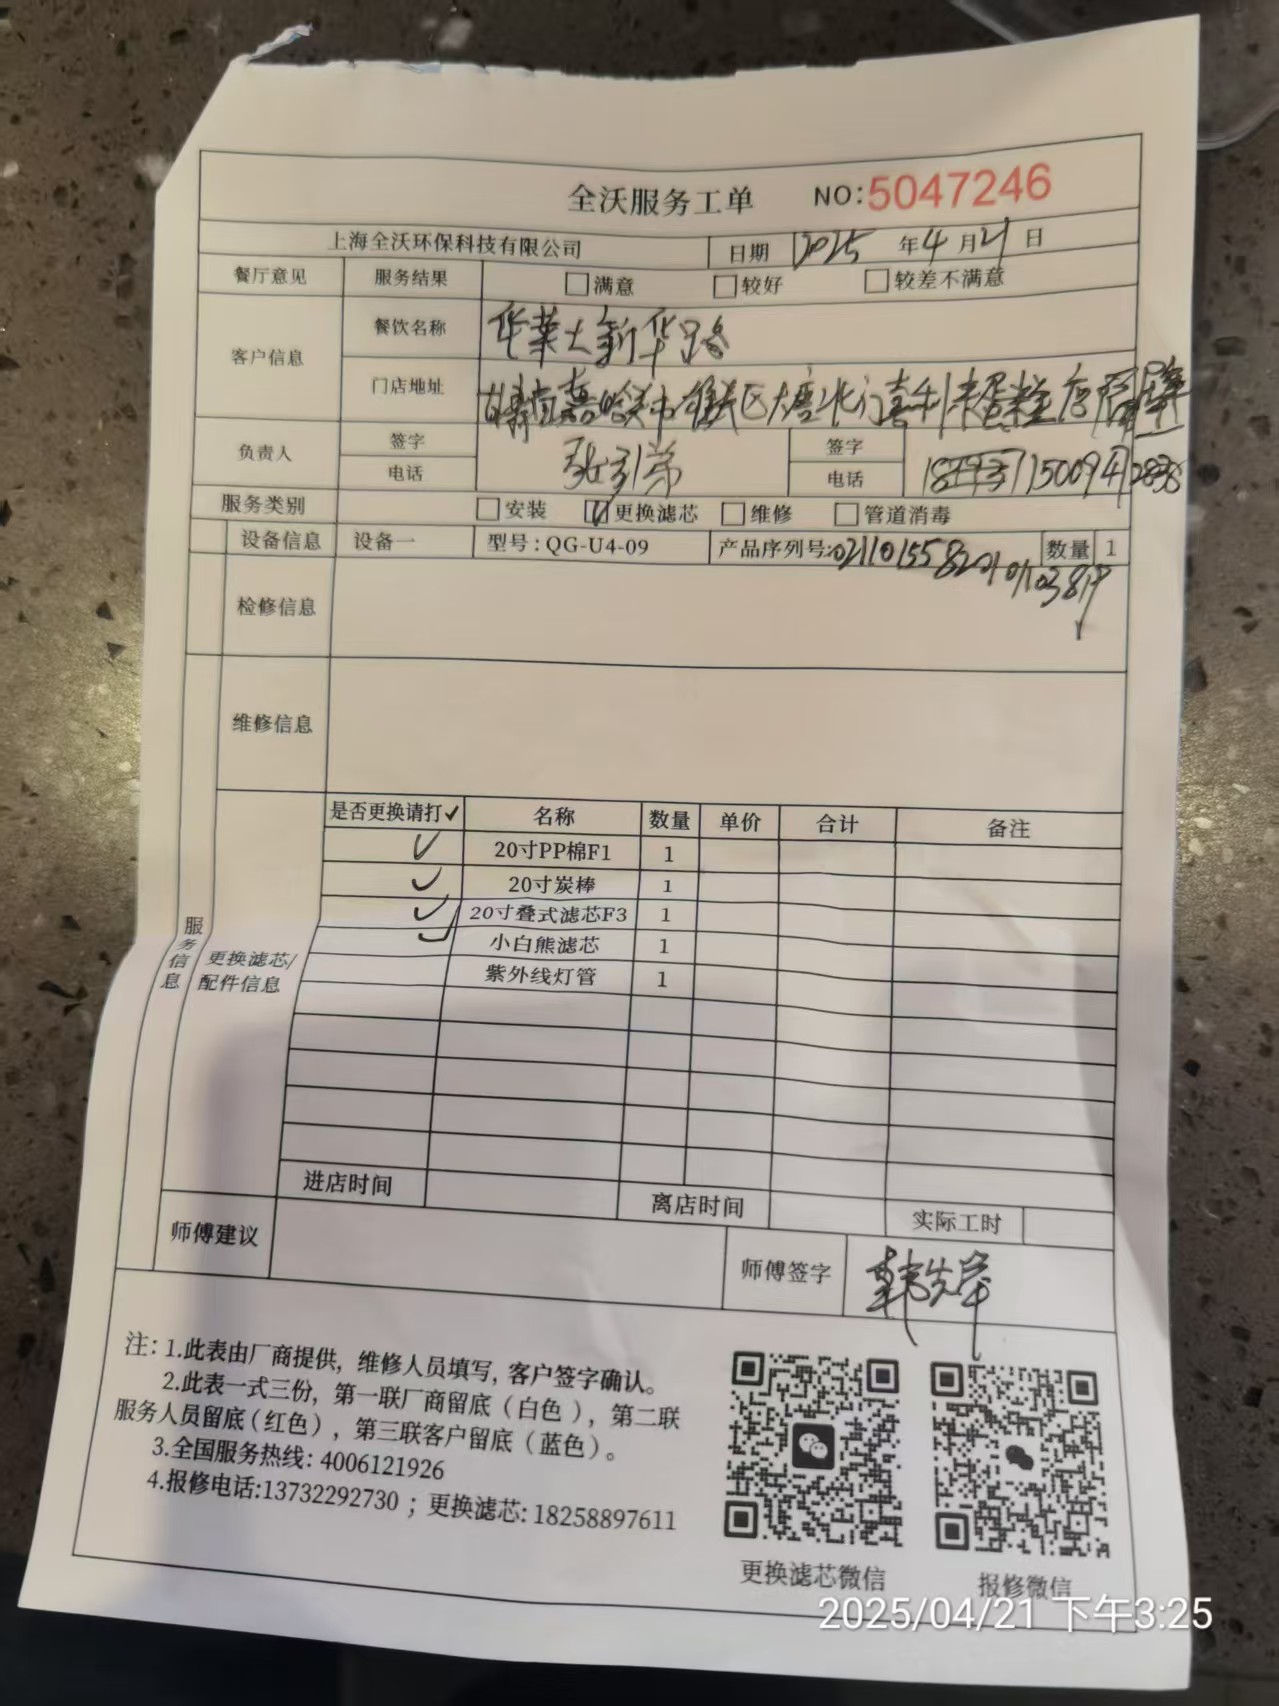 全沃服务工单 NO:5047246
上海全沃环保科技有限公司 日期 2025 年 4 月 21 日
餐厅意见 服务结果 满意 较好 较差不满意
客户信息 餐饮名称 华莱士新华路
门店地址 区 北门喜利来蛋糕店隔壁
负责人 签字 签字
电话 电话 15009412838
服务类别 安装 更换滤芯 维修 管道消毒
设备信息 设备一 型号:QG-U4-09 产品序列号: 数量 1
检修信息
维修信息
服务信息
更换滤芯/
配件信息
是否更换请打✓ 名称 数量 单价 合计 备注
✓ 20寸PP棉F1 1
✓ 20寸炭棒 1
✓ 20寸叠式滤芯F3 1
✓ 小白熊滤芯 1
紫外线灯管 1
进店时间 离店时间 实际工时
师傅建议 师傅签字
注: 1.此表由厂商提供, 维修人员填写, 客户签字确认。
2.此表一式三份, 第一联厂商留底(白色), 第二联
服务人员留底(红色), 第三联客户留底(蓝色)。
3.全国服务热线: 4006121926
4.报修电话:13732292730 ; 更换滤芯: 18258897611
更换滤芯微信 报修微信
2025/04/21 下午3:25